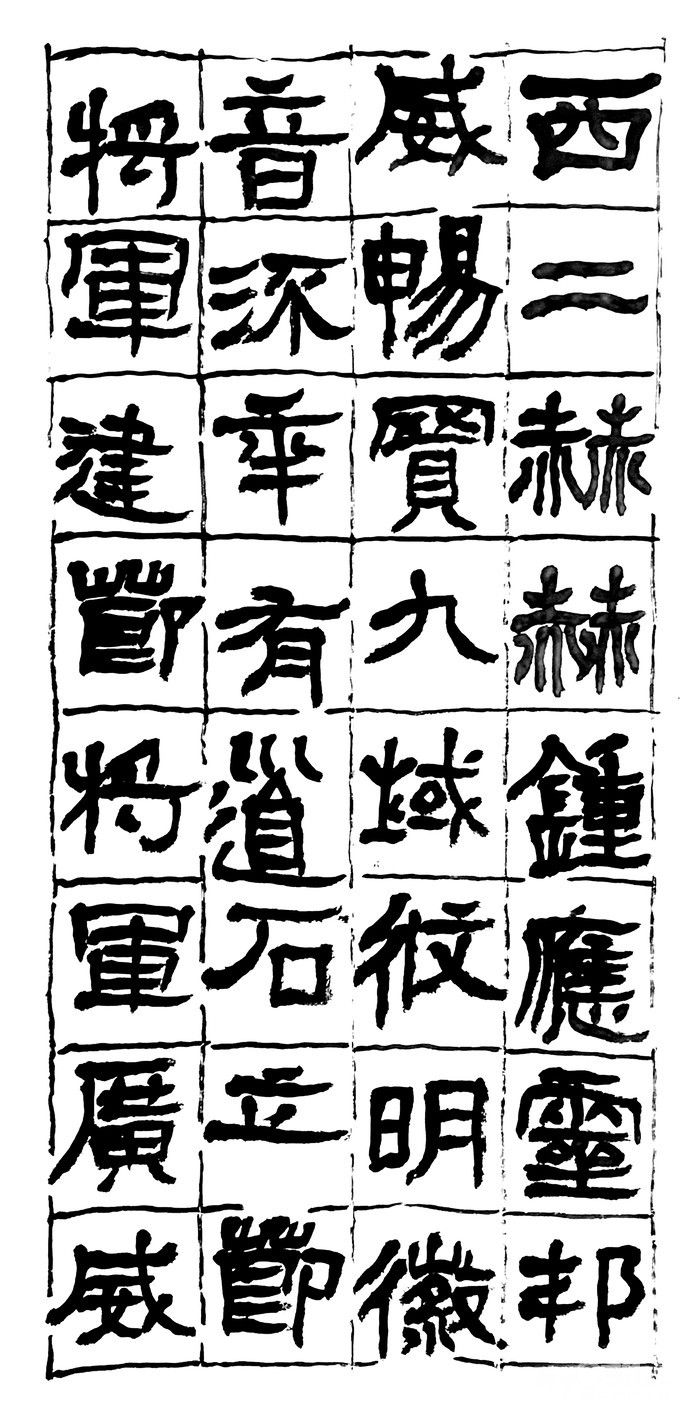 西二赫赫鍾應靈邦
威暢賢九域明徽
音有道石立節
将軍建節将軍廣威